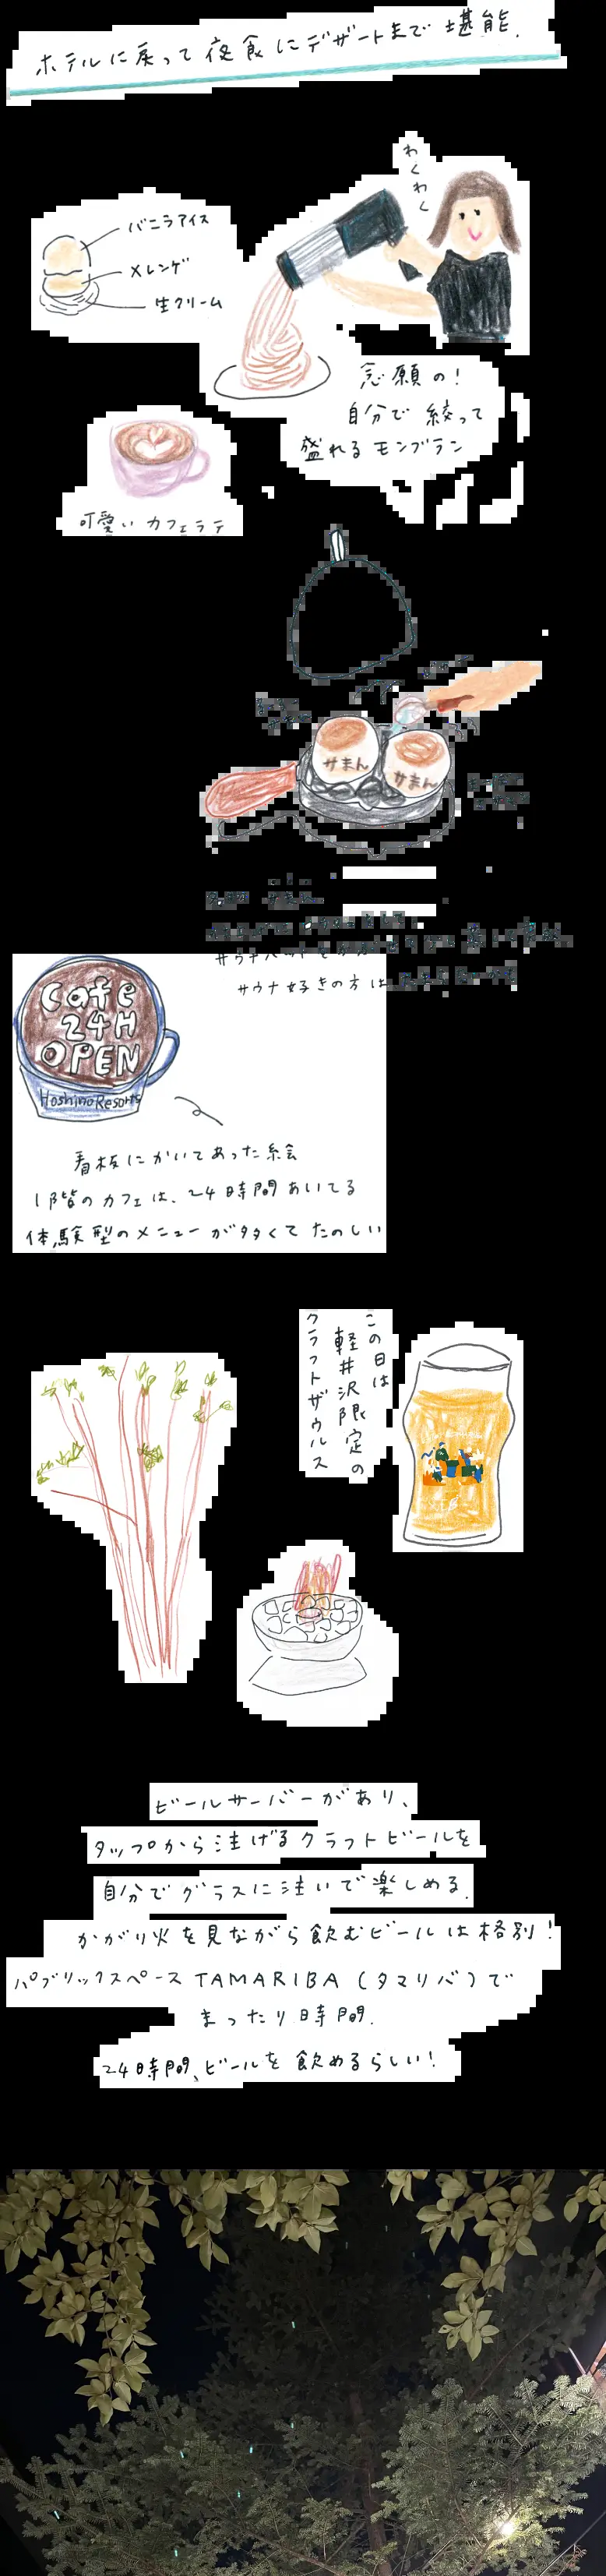 ホテルに戻って夜食にデザートまで堪能.
わくわく
バニラアイス
メレンゲ
生クリーム
念願の!
自分で絞って
盛れるモンブラン
可愛いカフェラテ
サまん
サまん
サウナ
サウナ好きの方は
Cafe
24H
OPEN
Hoshino Resorts
看板にかいてあった絵
1階のカフェは、24時間あいてる
体験型のメニューが多くてたのしい
この日は
軽井沢限定の
クラフトザウルス
ビールサーバーがあり、
タップから注げるクラフトビールを
自分でグラスに注いで楽しめる.
かがり火を見ながら飲むビールは格別!
パブリックスペース TAMARIBA (タマリバ)で
まったり時間.
24時間、ビールを飲めるらしい!